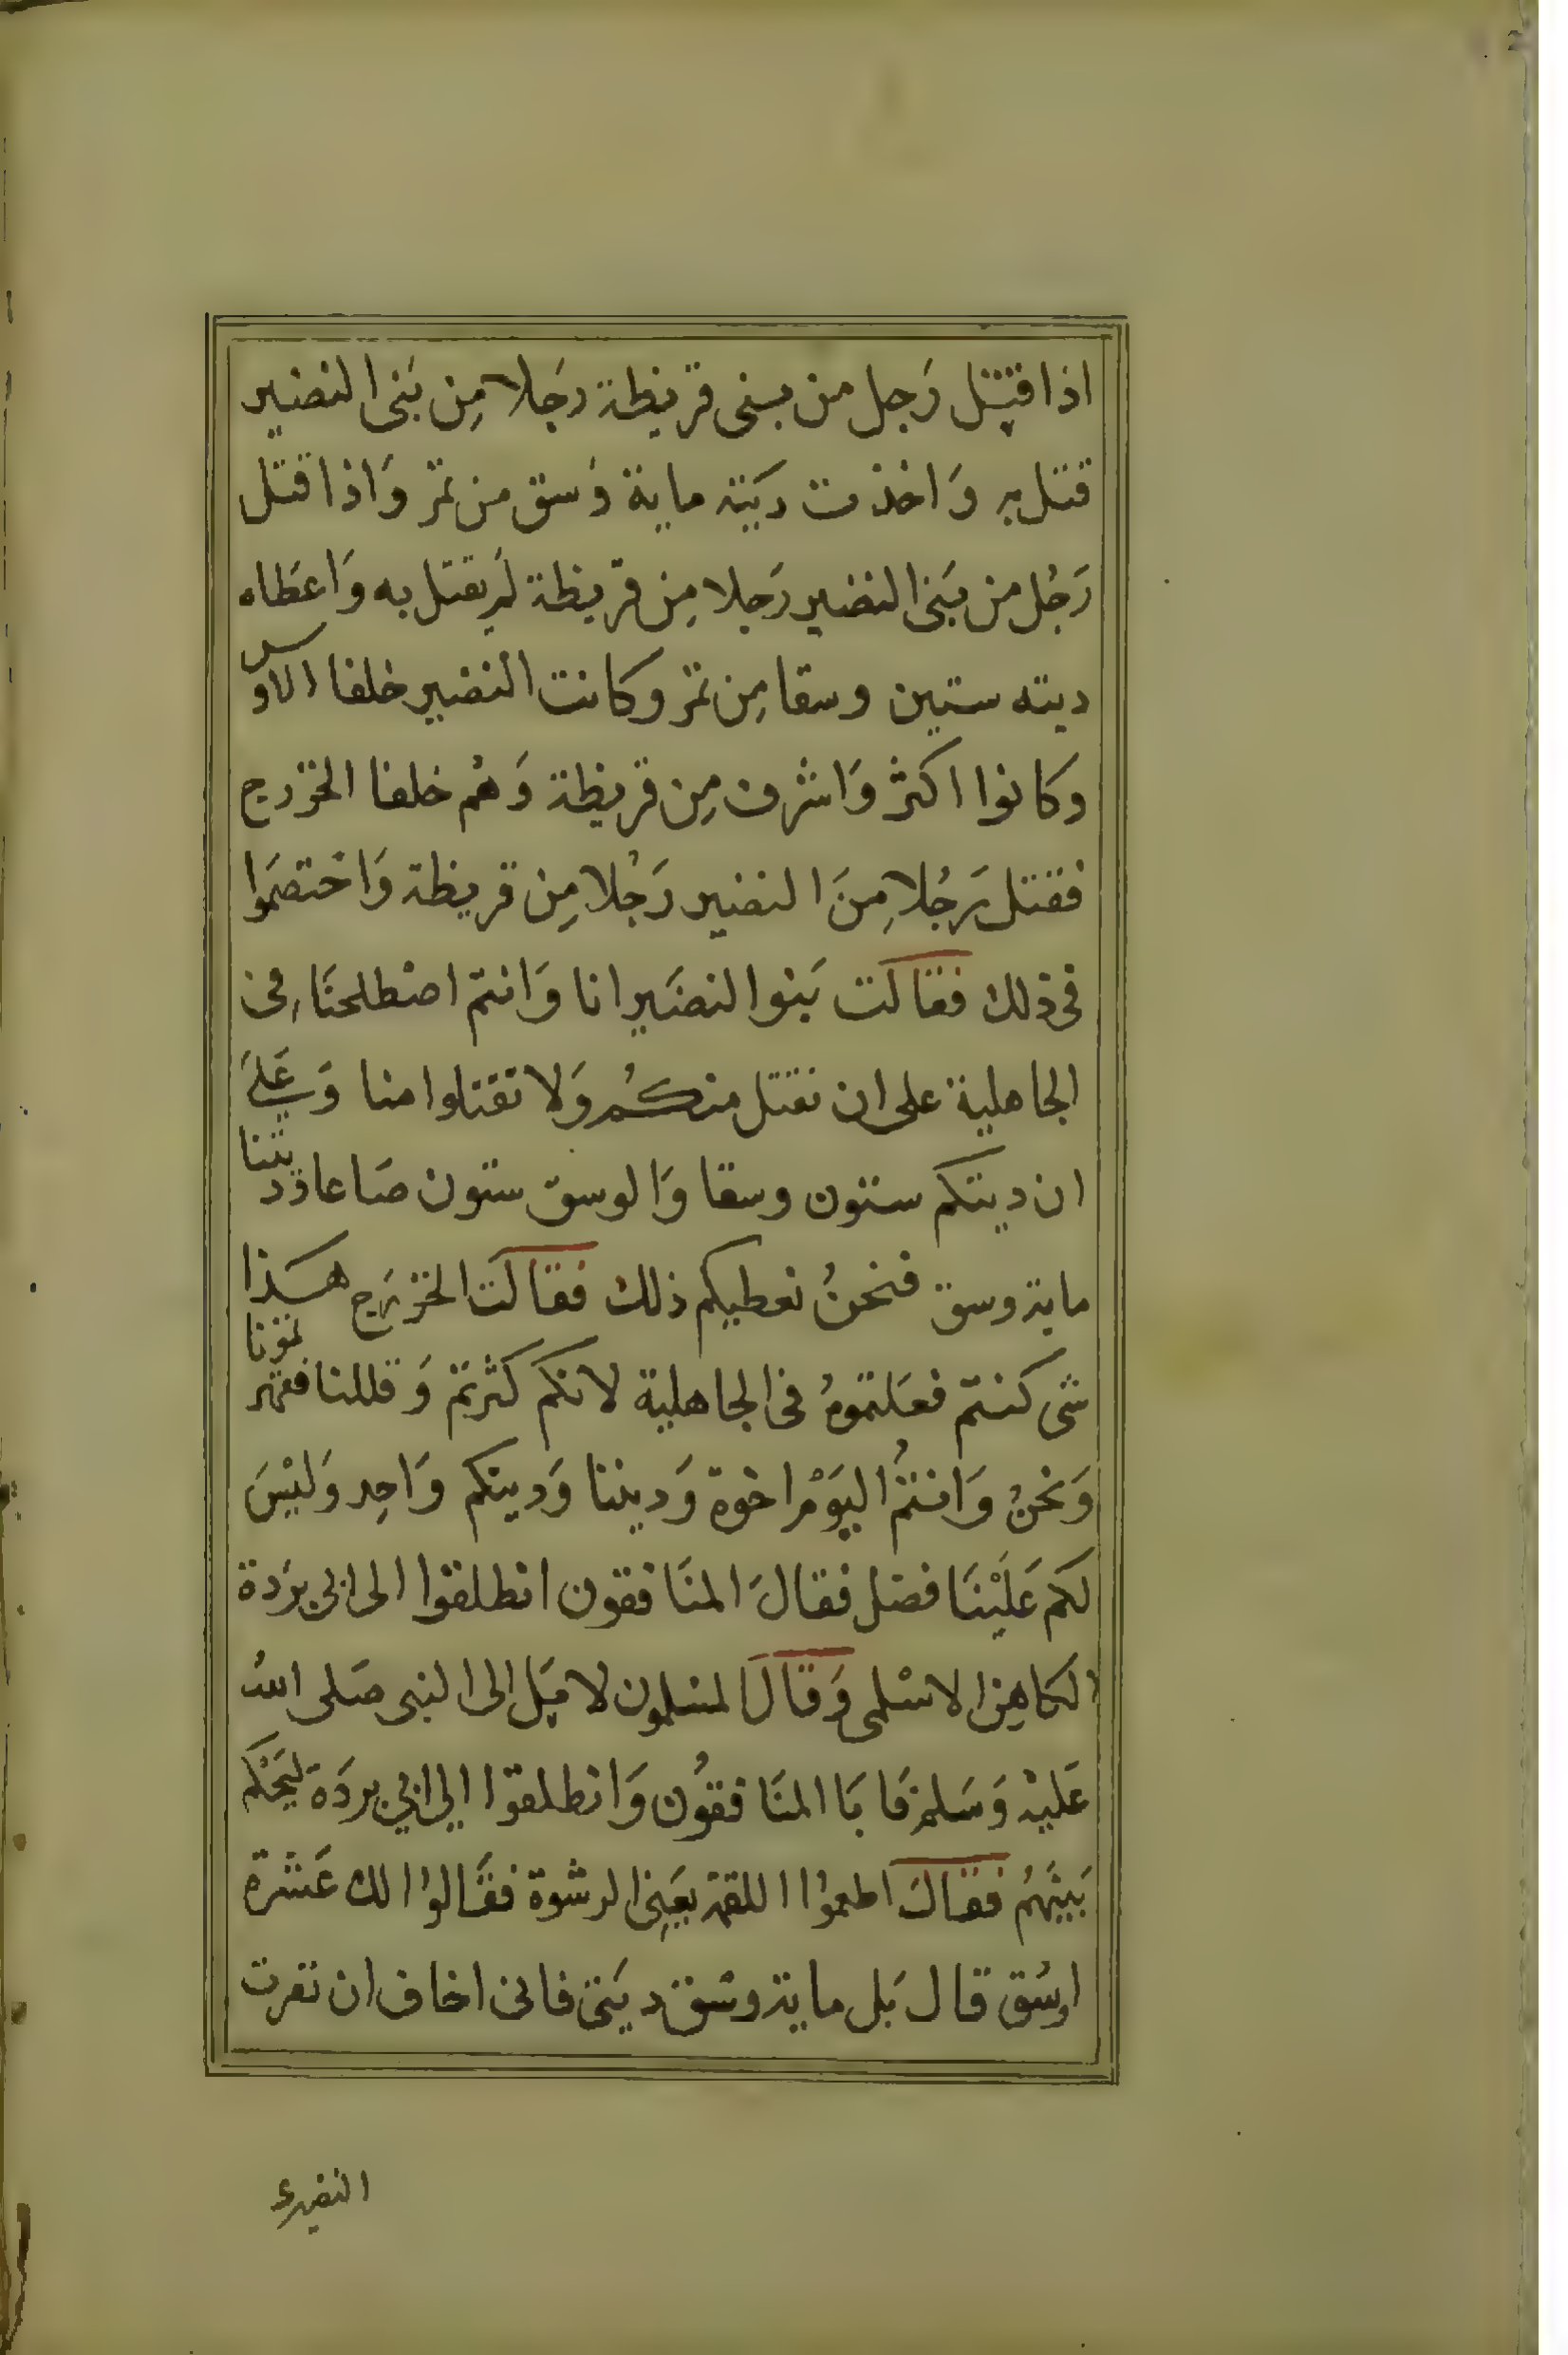 اذا قتل رَجل من بنى قريظة رجَلا مِن بَنى النضير
قتل به وَاخذت ديَته ماية وَسق من تمر وَاذا قتل
رَجُل من بَنى النضير رَجلا مِن قريظة لم يقتل به وَاعَطاه
ديته ستين وسقا مِن تمر وكانت النضير حلفا الاوس
وَكانوا اكثر وَاشرف مِن قريظة وَهُم حلفا الخزرج
فقتل رَجُلا مِنَ النضير رَجُلا مِن قريظة وَاختصَموا
فى ذلك فقالت بَنوا النضَير انا وَانتم اصْطلحنَا فى
الجاهلية على ان نقتل منكُم وَلا تقتلوا منا وَعَلىَ
ان ديتكم ستون وسقا وَالوسق ستون صَاعا وديتنا
ماية وسق فنحنُ نعطيكم ذلك فقالَت الخزرَج هَذا
شى كنتم فعَلتموهُ فى الجاهلية لانكم كثرتم وَقللنا فقهرتمونا
وَنحنُ وَانتُم اليَوْم اخوة وَديننا وَدينكم وَاحِد وَليْسَ
لكم عَليْنَا فضل فقالَ المنَافقون انطلقوا الى ابى برَدة
الكاهِن الاسْلمى وَقالَ المسْلمون لا بَل الى النبى صَلى اللهُ
عَليْه وَسَلم فَابَا المنَافقُون وَانطلقوا الي ابي بردَة ليَحْكم
بَينَهُم فقالَ اطعموا اللقمة يعَنِى الرشوة فقَالوا لك عَشرة
اوسُق قال بَل ماية وسْق ديَتى فانى اخاف ان نفرت
النضيرى